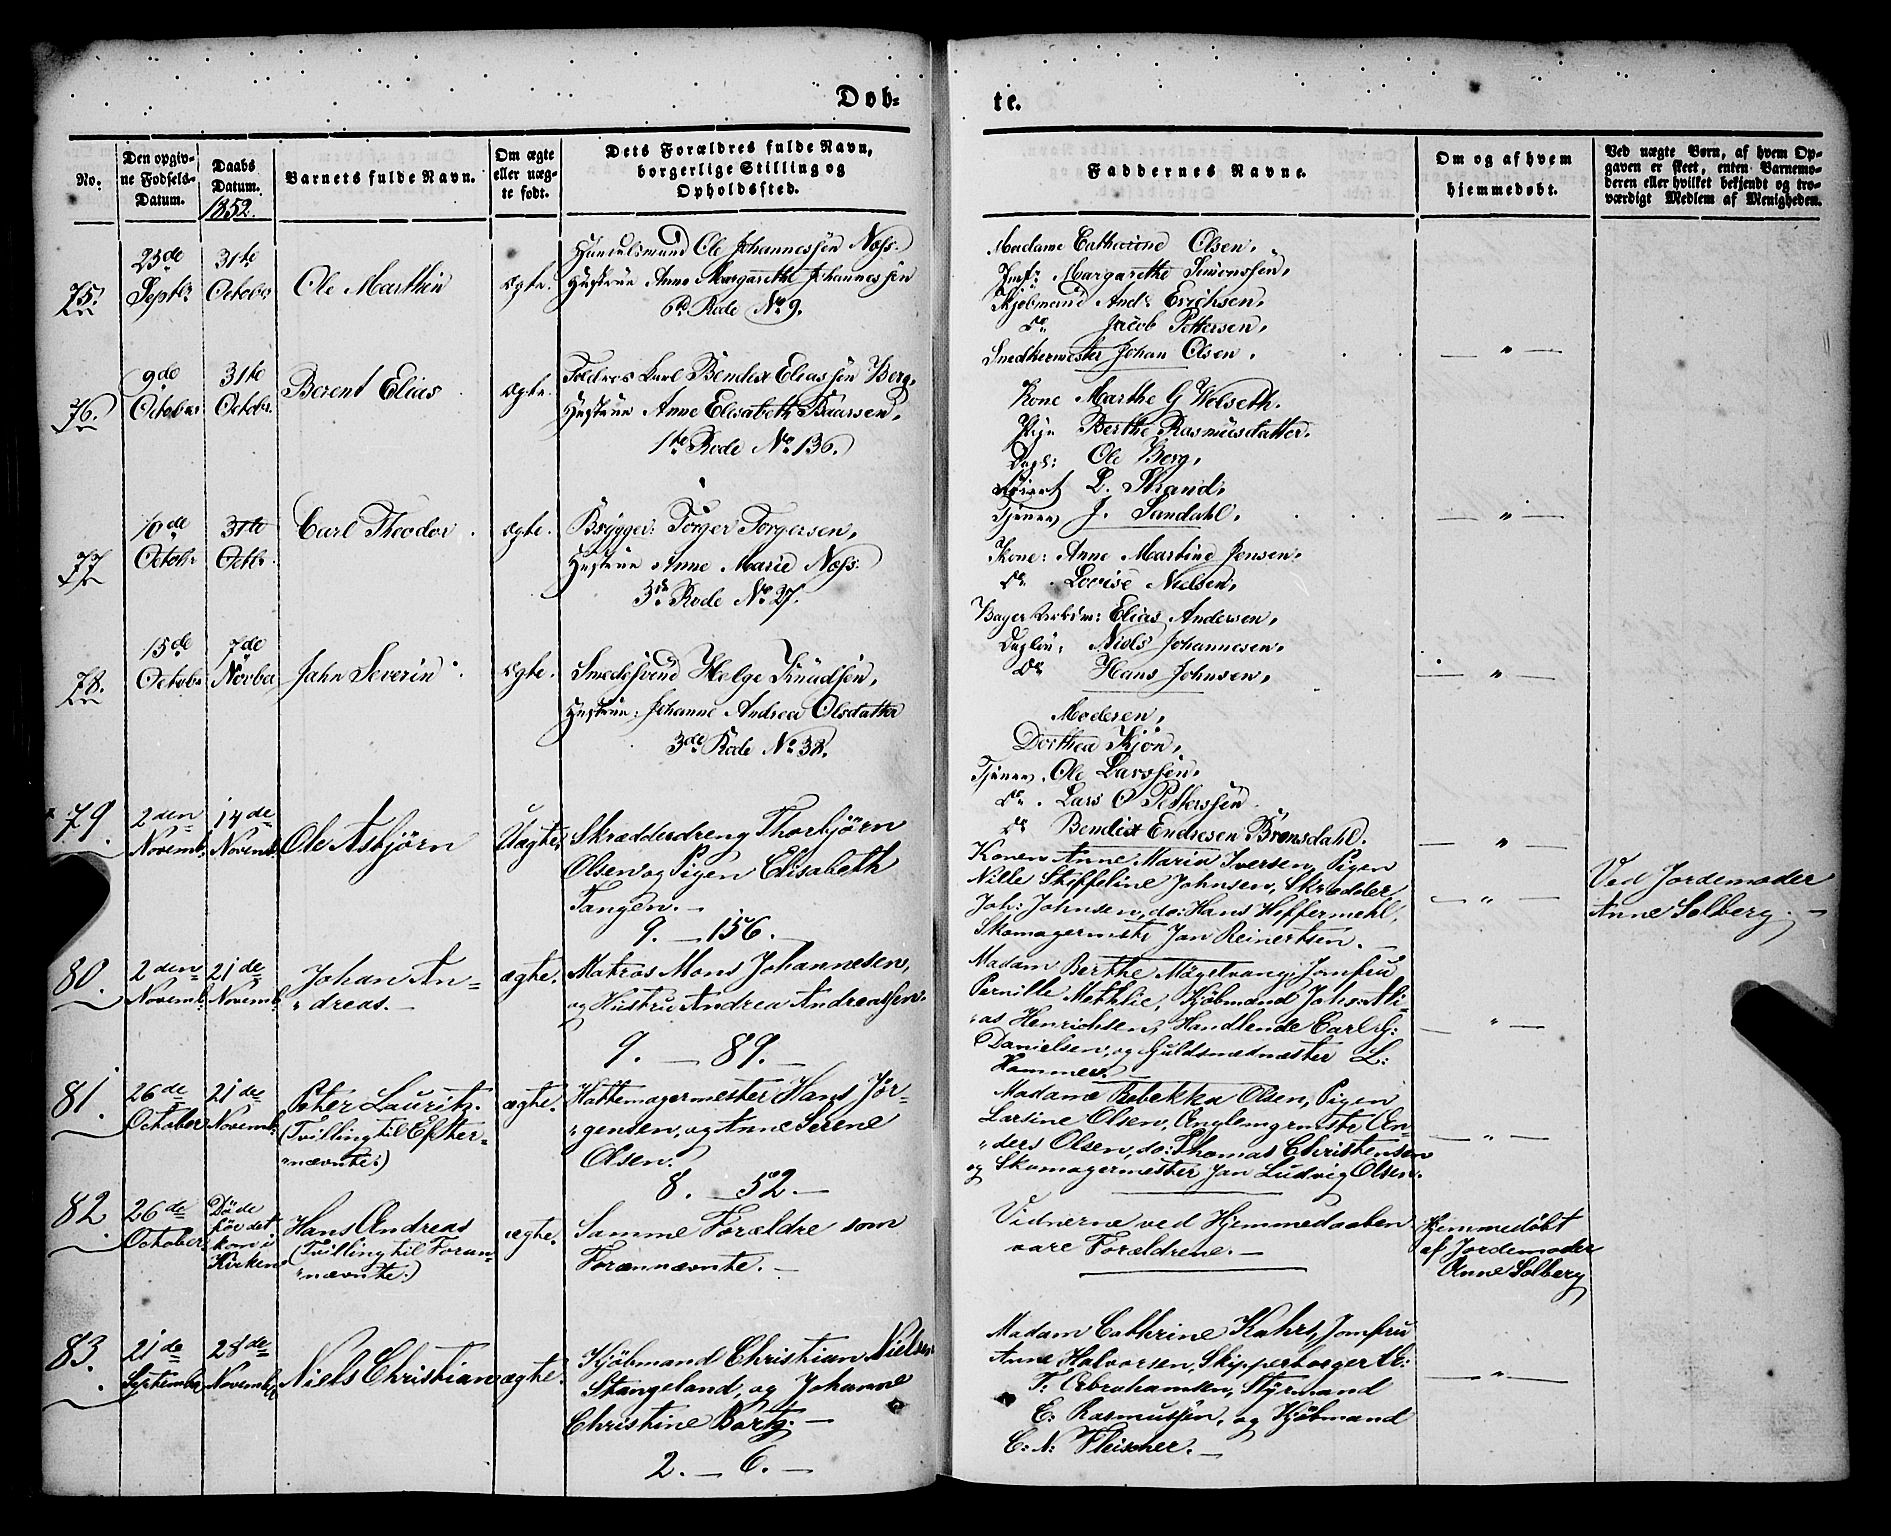 Døb-
te.
No.
Den opgiv-
ne Fødsels-
Datum.
Daabs
Datum.
1852.
Barnets fulde Navn.
Om ægte
eller uæg-
te født.
Dets Forældres fulde Navn,
borgerlige Stilling og
Opholdssted.
Faddernes Navne.
Om og af hvem
hjemmedøbt.
Ved uægte Børn, af hvem Op-
gaven er skeet, enten Barnemo-
deren eller hvilket bekjendt og tro-
værdigt Medlem af Menigheden.
75.
23de
Septbr
31te
October
Ole Marthin
ægte.
Handelsmand Ole Johannessen Næss.
Hustrue Anne Margarethe Johannessen
6te Rode No 9.
Madame Cathrine Olsen,
Jmfr: Margarethe Simonssen,
Kjøbmand Andr Erichsen,
Do Jacob Pettersen,
Snedkermester Johan Olsen,
— " —
76.
9de
October
31te
Octobr.
Berent Elias
ægte.
Carl Bendix Eliassen Berg,
Hustrue Anne Elisabeth Baarsen,
1te Rode No 136.
Kone Marthe G Welseth.
Pige Berthe Rasmusdatter.
Dagl: Ole Berg,
L. Strand,
J. Sandahl.
— " —
77
10de
Octob:
31te
Octb:
Carl Theodor
ægte.
Brygger: Torger Torgersen,
Hustrue Anne Marie Næss.
3de Rode No 27.
Kone: Anne Martine Jensen.
Do Lovise Nielsen,
Bager Elias Andersen,
Dagløn: Niels Johannesen,
Do Hans Johnsen,
— " —
78.
15de
October
7de
Novber
Jahn Severin
ægte.
Smedsvend Helge Knudsen,
Hustrue: Johanne Andrea Olsdatter
3de Rode No 38.
Moderen,
Dorthea Kjøn,
Tjener. Ole Larssen,
Do. Lars O Petterssen
Do Bendix Endresen Brønsdahl.
— " —
79.
2den
Novemb.
14de
Novemb.
Ole Asbjørn
Uægte
Skrædderdreng Thorbjørn
Olsen og Pigen Elisabeth
Tangen. —
9. — 156. —
Konen Anne Maria Iversen, Pigen
Nille Steffeline Johnsen, Skrædder
Joh: Johnsen, do: Hans Heffermehl,
Skomagermste Jan Reinertsen. —
— " —
Ved Jordemoder
Anne Solberg. —
80.
2den
Novemb.
21de
Novemb.
Johan An-
dreas. —
ægte.
Matros Mons Johannesen,
og Hustru Andrea Andreassen.
9. — 89. —
Madam Berthe Møgelvang, Jomfru
Pernille Methlie, Kjøbmand Johs: Mi-
as Henrichsen, Handlende Carl G:
Danielsen, og Guldsmedmester L:
Hammer. —
— " —
81.
26de
October
21de
Novemb:
Peter Lauritz.
(Tvilling til Efter-
nævnte.)
ægte.
Hattemagermester Hans Jør-
gensen, og Anne Serene
Olsen.
8. — 52. —
Madame Rebekka Olsen, Pigen
Lartine Olsen, Ænglemgrmste An-
ders Olsen, do: Thomas Christensen
og Skomagermester Jan Ludvig Olsen.
— " —
82.
26de
October.
Døde
før det
kom i
Kirken
Hans Andreas
(Tvilling til Foran-
nævnte.)
ægte.
Samme Forældre som
Forannævnte. —
Vidnerne ved Hjemmedaaben
vare Forældrene. —
Hjemmedøbt
af Jordemoder
Anne Solberg
83.
21de
September
28de
November
Niels Christian
ægte.
Kjøbmand Christian Nielsen
Stangeland, og Johanne
Christine Bartz. —
2. — 6. —
Madam Cathrine Kahrs, Jomfru
Anne Halvorsen, Skipperborger A:
T: Abrahamsen, Styrmand
E: Rasmussen, og Kjøbmand
C: N: Fleischer. —
— " —